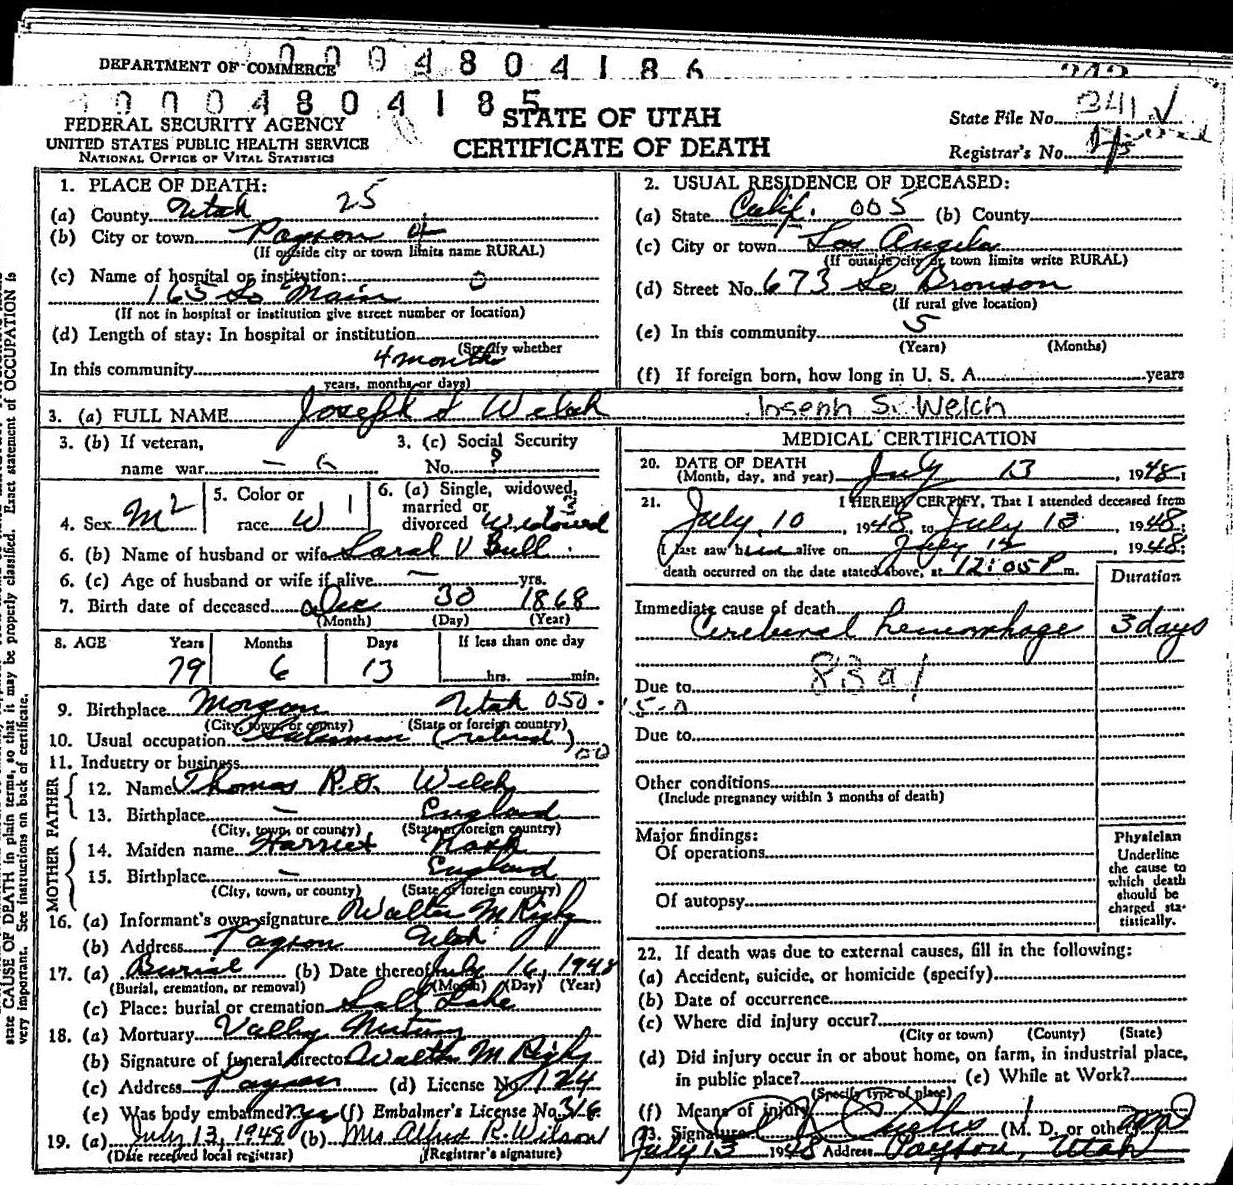 DEPARTMENT OF COMMERCE 0004804186
00004804185
STATE OF UTAH
CERTIFICATE OF DEATH
FEDERAL SECURITY AGENCY
UNITED STATES PUBLIC HEALTH SERVICE
NATIONAL OFFICE OF VITAL STATISTICS
State File No. 341 ✓
Registrar's No.
state CAUSE OF DEATH in plain terms, so that it may be properly classified. Exact statement of OCCUPATION is
very important. See instructions on back of certificate.
1. PLACE OF DEATH:
(a) County Utah 25
(b) City or town Payson 4
(If outside city or town limits name RURAL)
(c) Name of hospital or institution: 0
165 So Main
(If not in hospital or institution give street number or location)
(d) Length of stay: In hospital or institution
(Specify whether
In this community 4 months
years, months or days)
2. USUAL RESIDENCE OF DECEASED:
(a) State Calif. 005 (b) County
(c) City or town Los Angeles
(If outside city or town limits write RURAL)
(d) Street No. 673 So Bronson
(If rural give location)
(e) In this community 5
(Years) (Months)
(f) If foreign born, how long in U. S. A. years
3. (a) FULL NAME Joseph S Welch Joseph S. Welch
3. (b) If veteran,
name war —
3. (c) Social Security
No. ?
4. Sex M 2
5. Color or
race W 1
6. (a) Single, widowed,
married or
divorced Widowed 3
6. (b) Name of husband or wife Sarah V Bull
6. (c) Age of husband or wife if alive — yrs.
7. Birth date of deceased Dec 30 1868
(Month) (Day) (Year)
8. AGE Years Months Days If less than one day
79 6 13 hrs. min.
9. Birthplace Morgan Utah 050
(City, town, or county) (State or foreign country)
10. Usual occupation Salesman (retired)
11. Industry or business
FATHER
12. Name Thomas R.G. Welch
13. Birthplace — England
(City, town, or county) (State or foreign country)
MOTHER
14. Maiden name Harriet
15. Birthplace — England
(City, town, or county) (State or foreign country)
16. (a) Informant's own signature Walter M Rigby
(b) Address Payson Utah
17. (a) Burial (b) Date thereof July 16, 1948
(Burial, cremation, or removal) (Month) (Day) (Year)
(c) Place: burial or cremation Salt Lake
18. (a) Mortuary Valley
(b) Signature of funeral director Walter M Rigby
(c) Address Payson (d) License No. 124
(e) Was body embalmed? Yes (f) Embalmer's License No. 316
19. (a) July 13, 1948 (b) Mrs Alfred R. Wilson
(Date received local registrar) (Registrar's signature)
MEDICAL CERTIFICATION
20. DATE OF DEATH
(Month, day, and year) July 13, 1948;
21. I HEREBY CERTIFY, That I attended deceased from
July 10, 1948, to July 13, 1948;
I last saw him alive on July 12, 1948;
death occurred on the date stated above, at 12:05 P m.
Duration
Immediate cause of death
Cerebral hemorrhage 3 days
Due to 83a1
Due to
Other conditions
(Include pregnancy within 3 months of death)
Major findings:
Of operations
Of autopsy
Physician
Underline
the cause to
which death
should be
charged sta-
tistically.
22. If death was due to external causes, fill in the following:
(a) Accident, suicide, or homicide (specify)
(b) Date of occurrence
(c) Where did injury occur?
(City or town) (County) (State)
(d) Did injury occur in or about home, on farm, in industrial place,
in public place? (e) While at Work?
(Specify type of place)
(f) Means of injury
23. Signature Curtis (M. D. or other)
July 13 1948 Address Payson, Utah